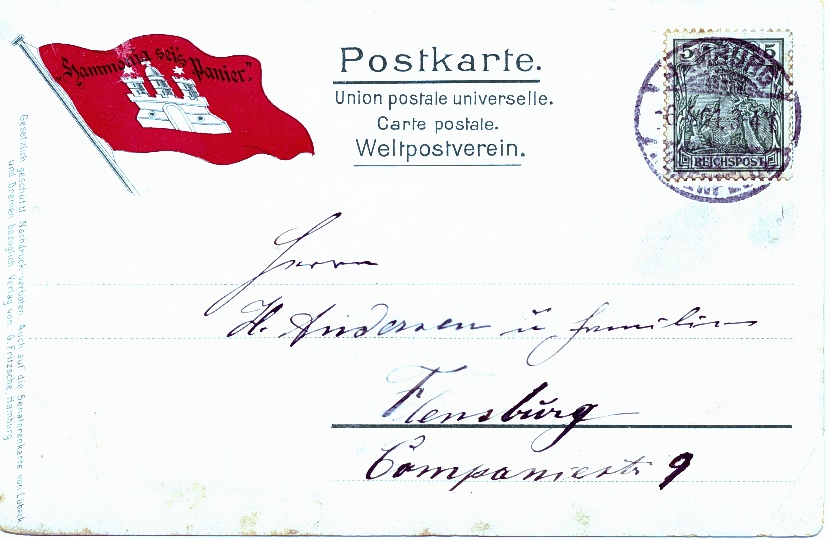 „Hammonia sei's
Panier."
Postkarte.
Union postale universelle.
Carte postale.
Weltpostverein.
5 5
REICHSPOST
Herrn
H. Andersen u Familie
Flensburg
Compagniestr 9
Gesetzlich geschützt. Nachdruck verboten. Auch auf die Senatorenkarte von Lübeck
und Bremen bezüglich. Verlag von G. Fritzsche, Hamburg.